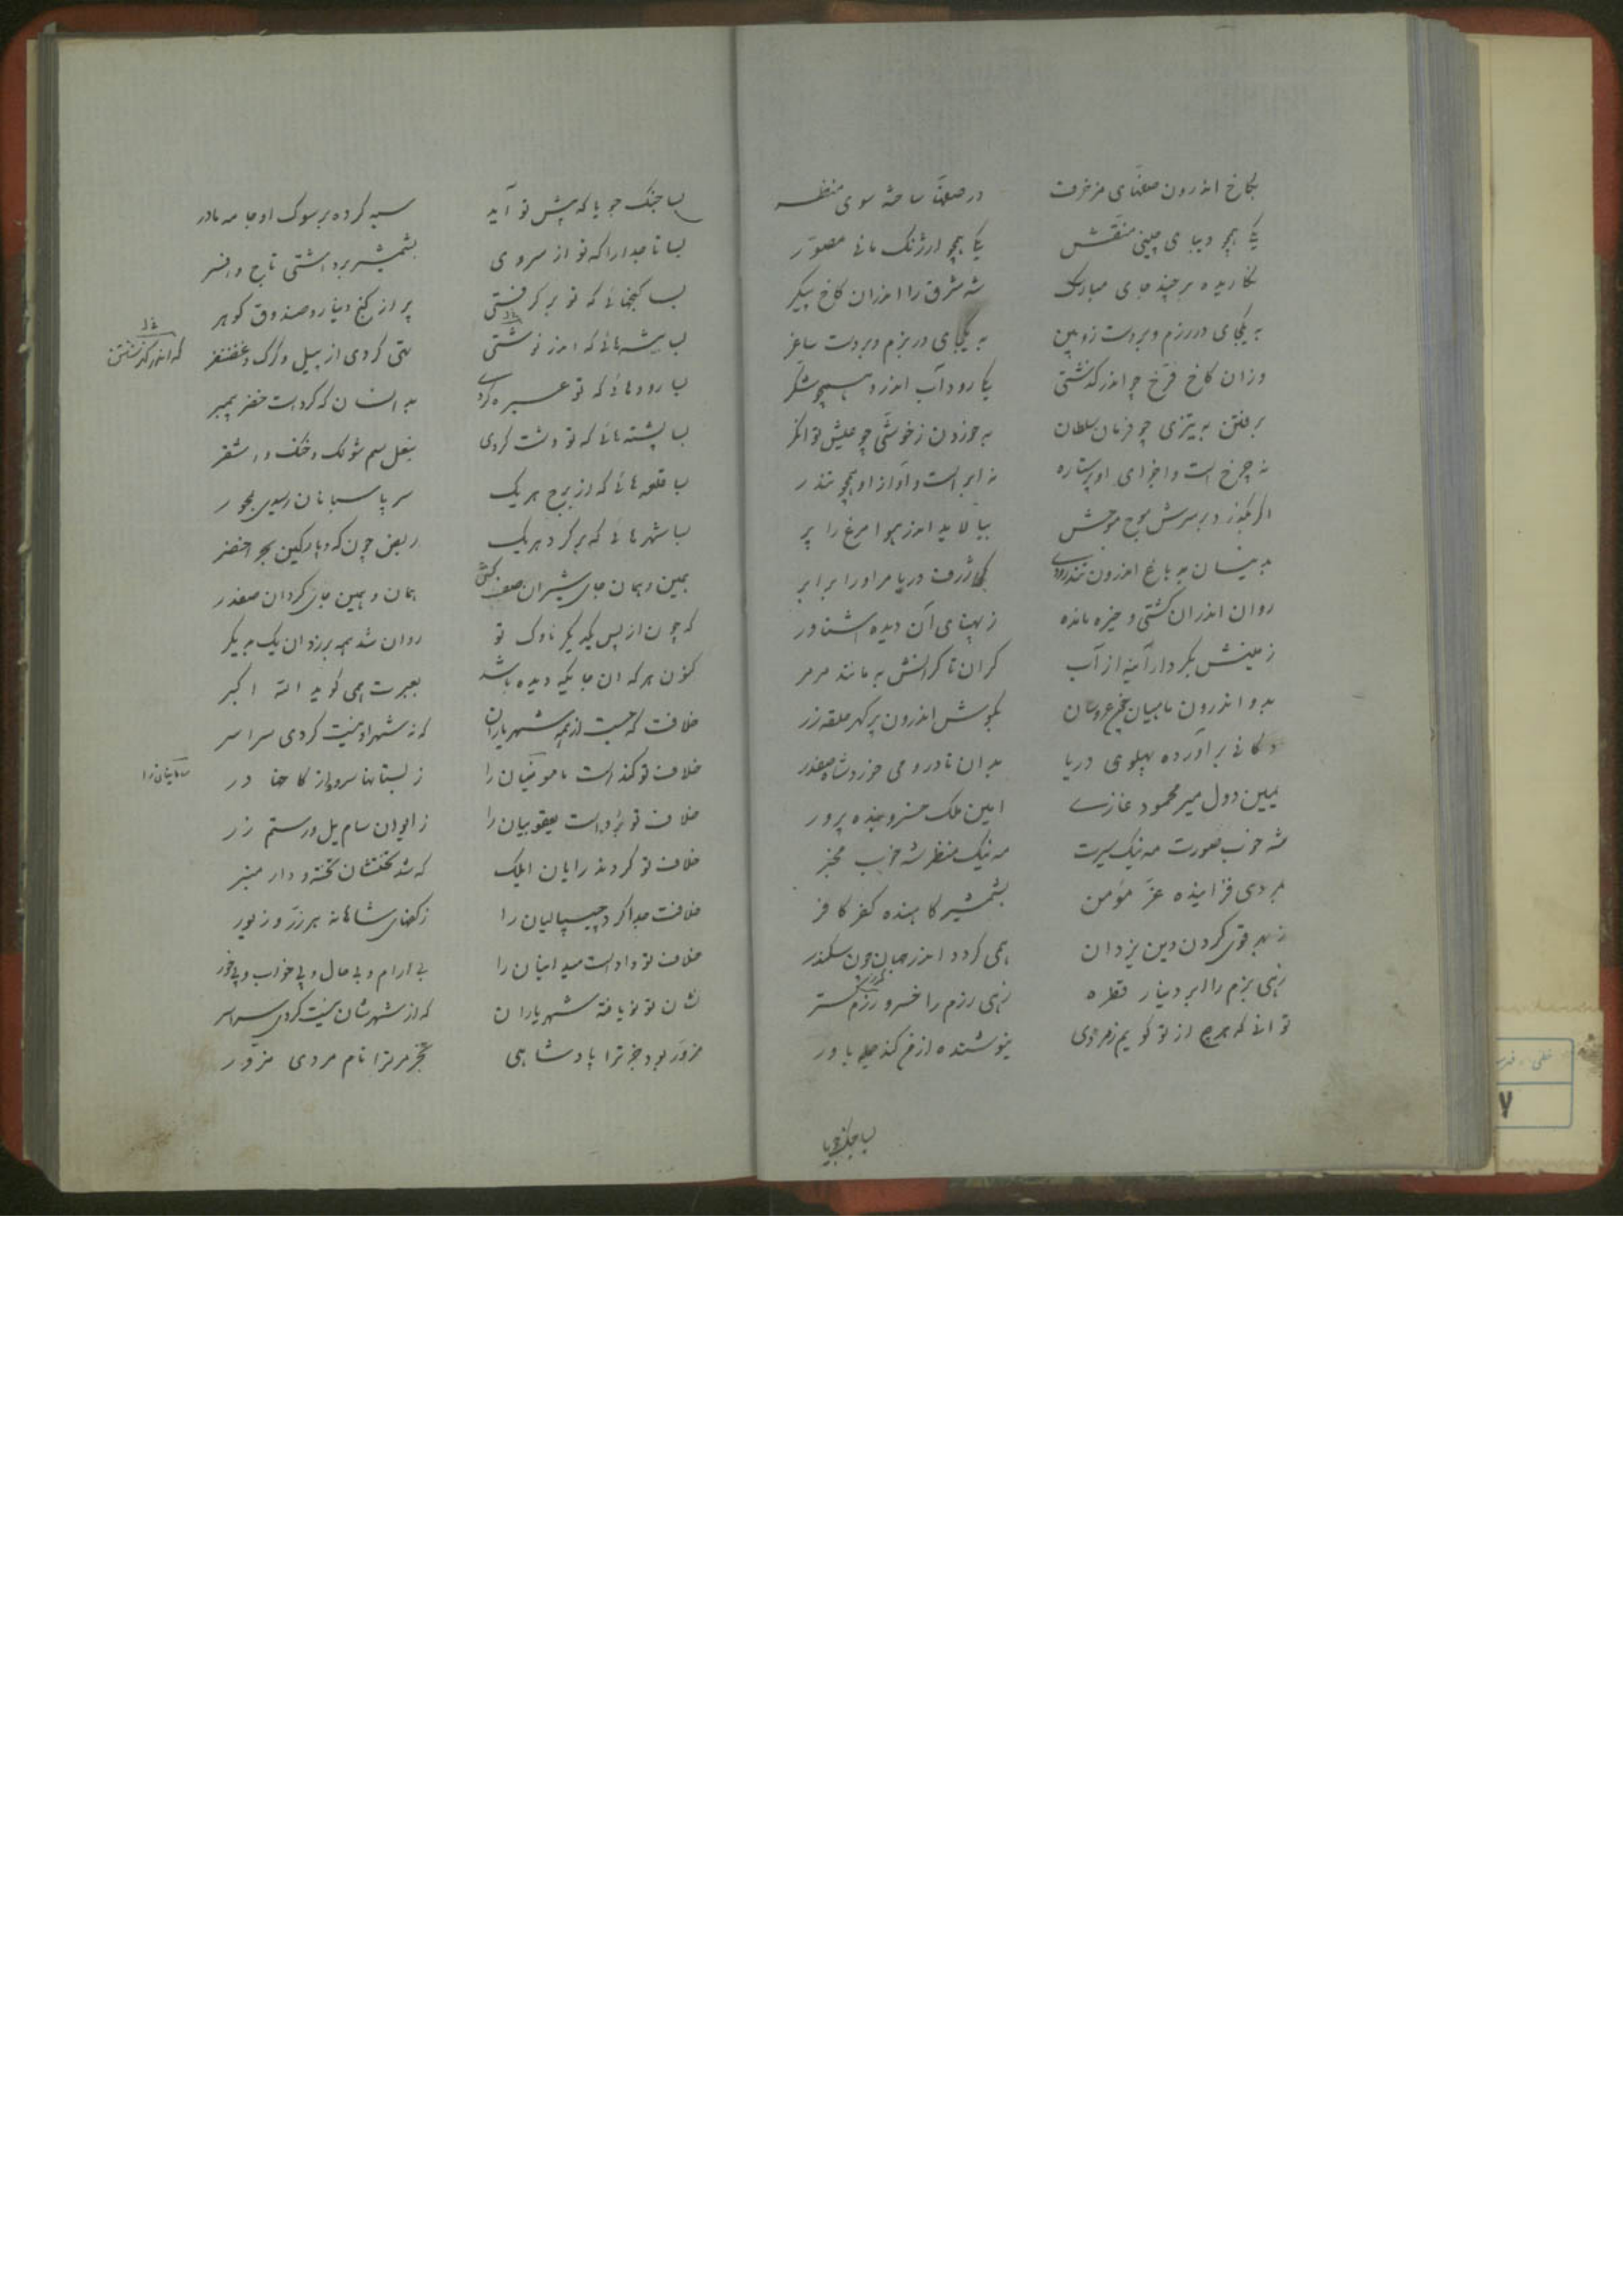 بکاخ اندرون صفهای مزخرف در صفها ساخته سوی منظر
یکی همچو دیبای چینی منقش یکی همچو ارژنک مانی مصور
نکاریده بر چند جای مبارک شه شرق را اندران کاخ پیکر
به یکجای در رزم و بر دست زوبین به یکجای در بزم و بر دست ساغر
وزان کاخ فرخ چو اندر کذشتی یکی رود آب اندرو همچو شکر
برفتن به تیزی چو فرمان سلطان به خوردن ز خوشی چو عیش توانکر
نه چرخ است و اجزای او پر ستاره نه ابر است و آواز او همچو تندر
اکر بکذرد بر سرش موج موجش بیالاید اندر هوا مرغ را پر
بدینسان به باغ اندرون تند رودی کجا ژرف دریا مر او را برابر
روان اندران کشتی و خیره مانده ز پهنای آن دیده اشناور
زمینش بکردار آینه از آب کران تا کرانش به مانند مرمر
بدو اندرون ماهیان چو عروسان بکوش اندرون پر کهر حلقه زر
دکانی برآورده پهلوی دریا بدان تا درو می خورد شاه صفدر
یمین دول میر محمود غازی امین ملک خسرو بنده پرور
شه خوب صورت مه نیک سیرت مه نیک منظر شه خوب مخبر
بردی فزاینده عز مؤمن بشمشیر کاهنده کفر کافر
ز بهر قوی کردن دین یزدان همی کردد اندر جهان چون سکندر
زهی بزم را ابر دینار قطره زهی رزم را خسرو رزم کستر
تو آنی که هرچ از تو کویم ز مردی نیوشنده از من کند جمله باور
بسا جنکجویا
بسا جنک جویا که پیش تو آید سیه کرده بر سوک او جامه مادر
بسا تاجدارا که تو از سر وی بشمشیر برداشتی تاج و افسر
بسا کنجهائی که تو بر کرفتی پر از کنج دینار و صندوق کوهر
بسا بیشه‌هائی که اندر نوشتی تهی کردی از پیل و کرک و غضنفر
که اندر کذشتن
بسا رودهائی که تو عبره کردی بدانسان که کردست خضر پیمبر
بسا پشته‌هائی که تو دشت کردی بنعل سم شولک و خنک و اشقر
بسا قلعه‌هائی که از برج هر یک سر پاسبانان رسیدی بمحور
بسا شهرهائی که بر کرد هر یک ربض چون که و پارکین بحر اخضر
همین و همان جای شیران صف کش همان و همین جای کردان صفدر
که چون از پس یکدیکر ناوک تو روان شد همه برزد آن یک به دیکر
کنون هر که آن جایکه دیده باشد بعبرت همی کوید الله اکبر
خلافت که جست از همه شهریاران که نه شهر او نیست کردی سراسر
خلاف تو کنده است مامونیان را ز بستانها سرو و از کاخها در
خلاف تو بزدوده است یعقوبیان را ز ایوان سام یل و رستم زر
خلاف تو کردند رایان ایلک که شد تختشان تخته و دار منبر
خلافت جدا کرد چیپالیان را ز کتهای شاهانه پر زر و زیور
خلاف تو داده است میدانیان را بی آرام و بی هال و بی خواب و بی خور
نشان تو نایافته شهریاران که از شهرشان نیست کردی سراسر
مزور بود جز ترا پادشاهی بجز مر ترا نام مردی مزور